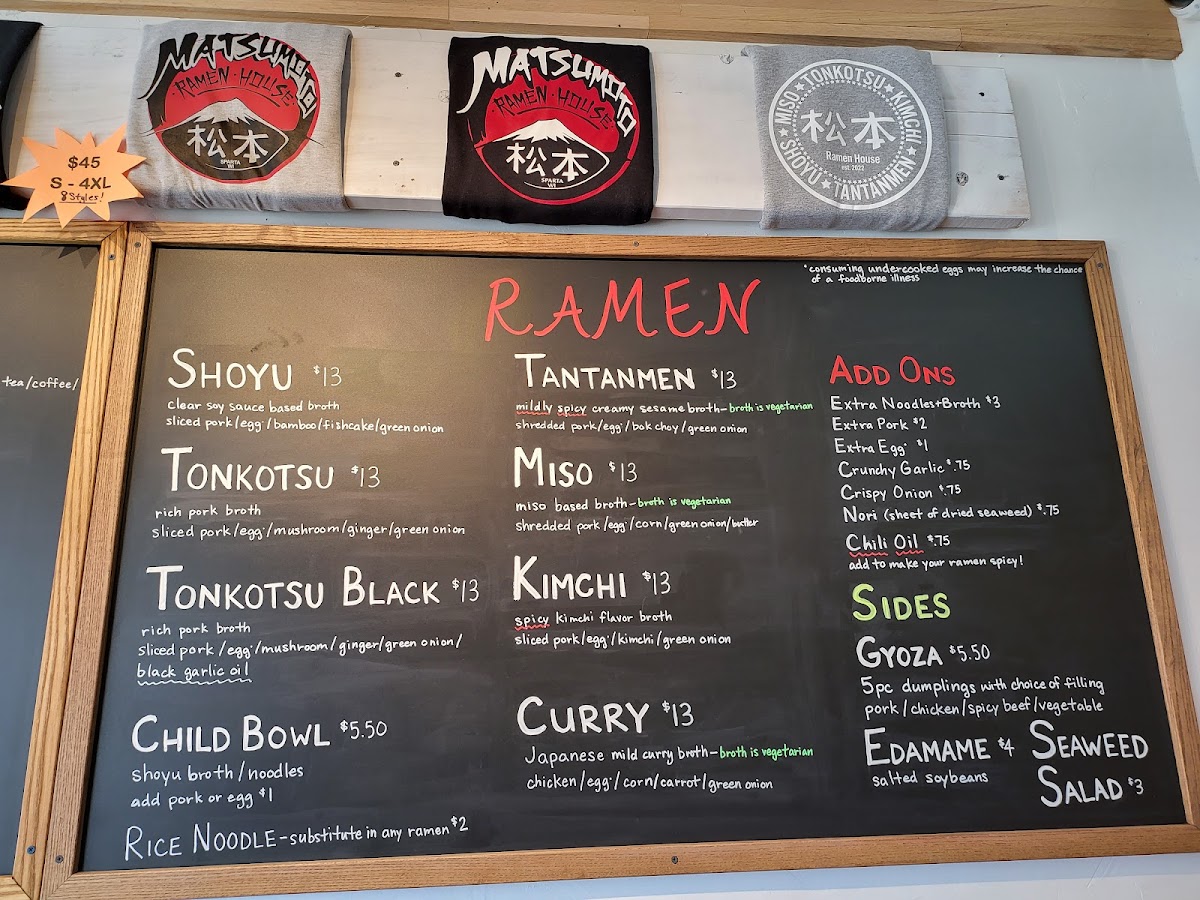 MATSUMOTO
RAMEN·HOUSE
松本
SPARTA
WI
MATSUMOTO
RAMEN·HOUSE
松本
SPARTA
WI
MISO ★ TONKOTSU ★ KIMCHI ★ TANTANMEN ★ SHOYU ★
松本
Ramen House
est. 2022
$45
S - 4XL
8 Styles!
tea/coffee/
RAMEN
*consuming undercooked eggs may increase the chance
of a foodborne illness
SHOYU $13
clear soy sauce based broth
sliced pork/egg*/bamboo/fishcake/green onion
TONKOTSU $13
rich pork broth
sliced pork/egg*/mushroom/ginger/green onion
TONKOTSU BLACK $13
rich pork broth
sliced pork/egg*/mushroom/ginger/green onion/
black garlic oil
CHILD BOWL $5.50
shoyu broth/noodles
add pork or egg $1
RICE NOODLE-substitute in any ramen $2
TANTANMEN $13
mildly spicy creamy sesame broth-broth is vegetarian
shredded pork/egg*/bok choy/green onion
MISO $13
miso based broth-broth is vegetarian
shredded pork/egg*/corn/green onion/butter
KIMCHI $13
spicy kimchi flavor broth
sliced pork/egg*/kimchi/green onion
CURRY $13
Japanese mild curry broth-broth is vegetarian
chicken/egg*/corn/carrot/green onion
ADD ONS
Extra Noodles+Broth $3
Extra Pork $2
Extra Egg* $1
Crunchy Garlic $.75
Crispy Onion $.75
Nori (sheet of dried seaweed) $.75
Chili Oil $.75
add to make your ramen spicy!
SIDES
GYOZA $5.50
5pc dumplings with choice of filling
pork/chicken/spicy beef/vegetable
EDAMAME $4
salted soybeans
SEAWEED
SALAD $3